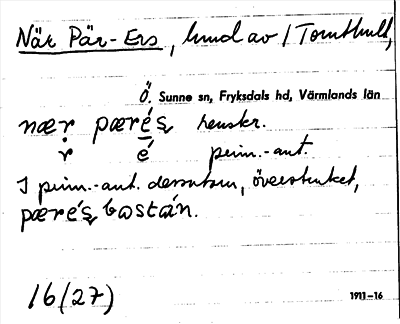 När Pär-Ers, hund av / Tomthult,
Ö. Sunne sn, Fryksdals hd, Värmlands län
nær pæres renskr.
r é prim.-ant.
I prim.-ant. dessutom, överstruket,
pærés bastán.
16(27)
1911–16